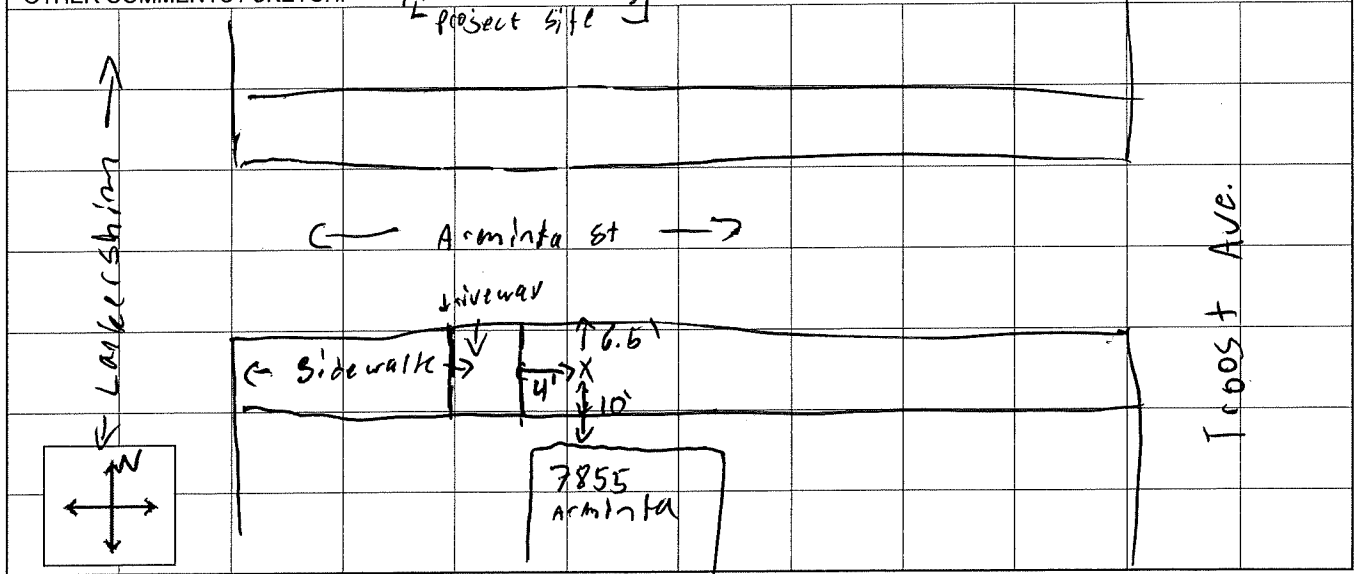 OTHER COMMENTS / SKETCH:
project site
← Lankershim →
← Arminta st →
Troost Ave.
driveway
← Sidewalk →
6.5'
X
4'
10'
N
7855
Arminta